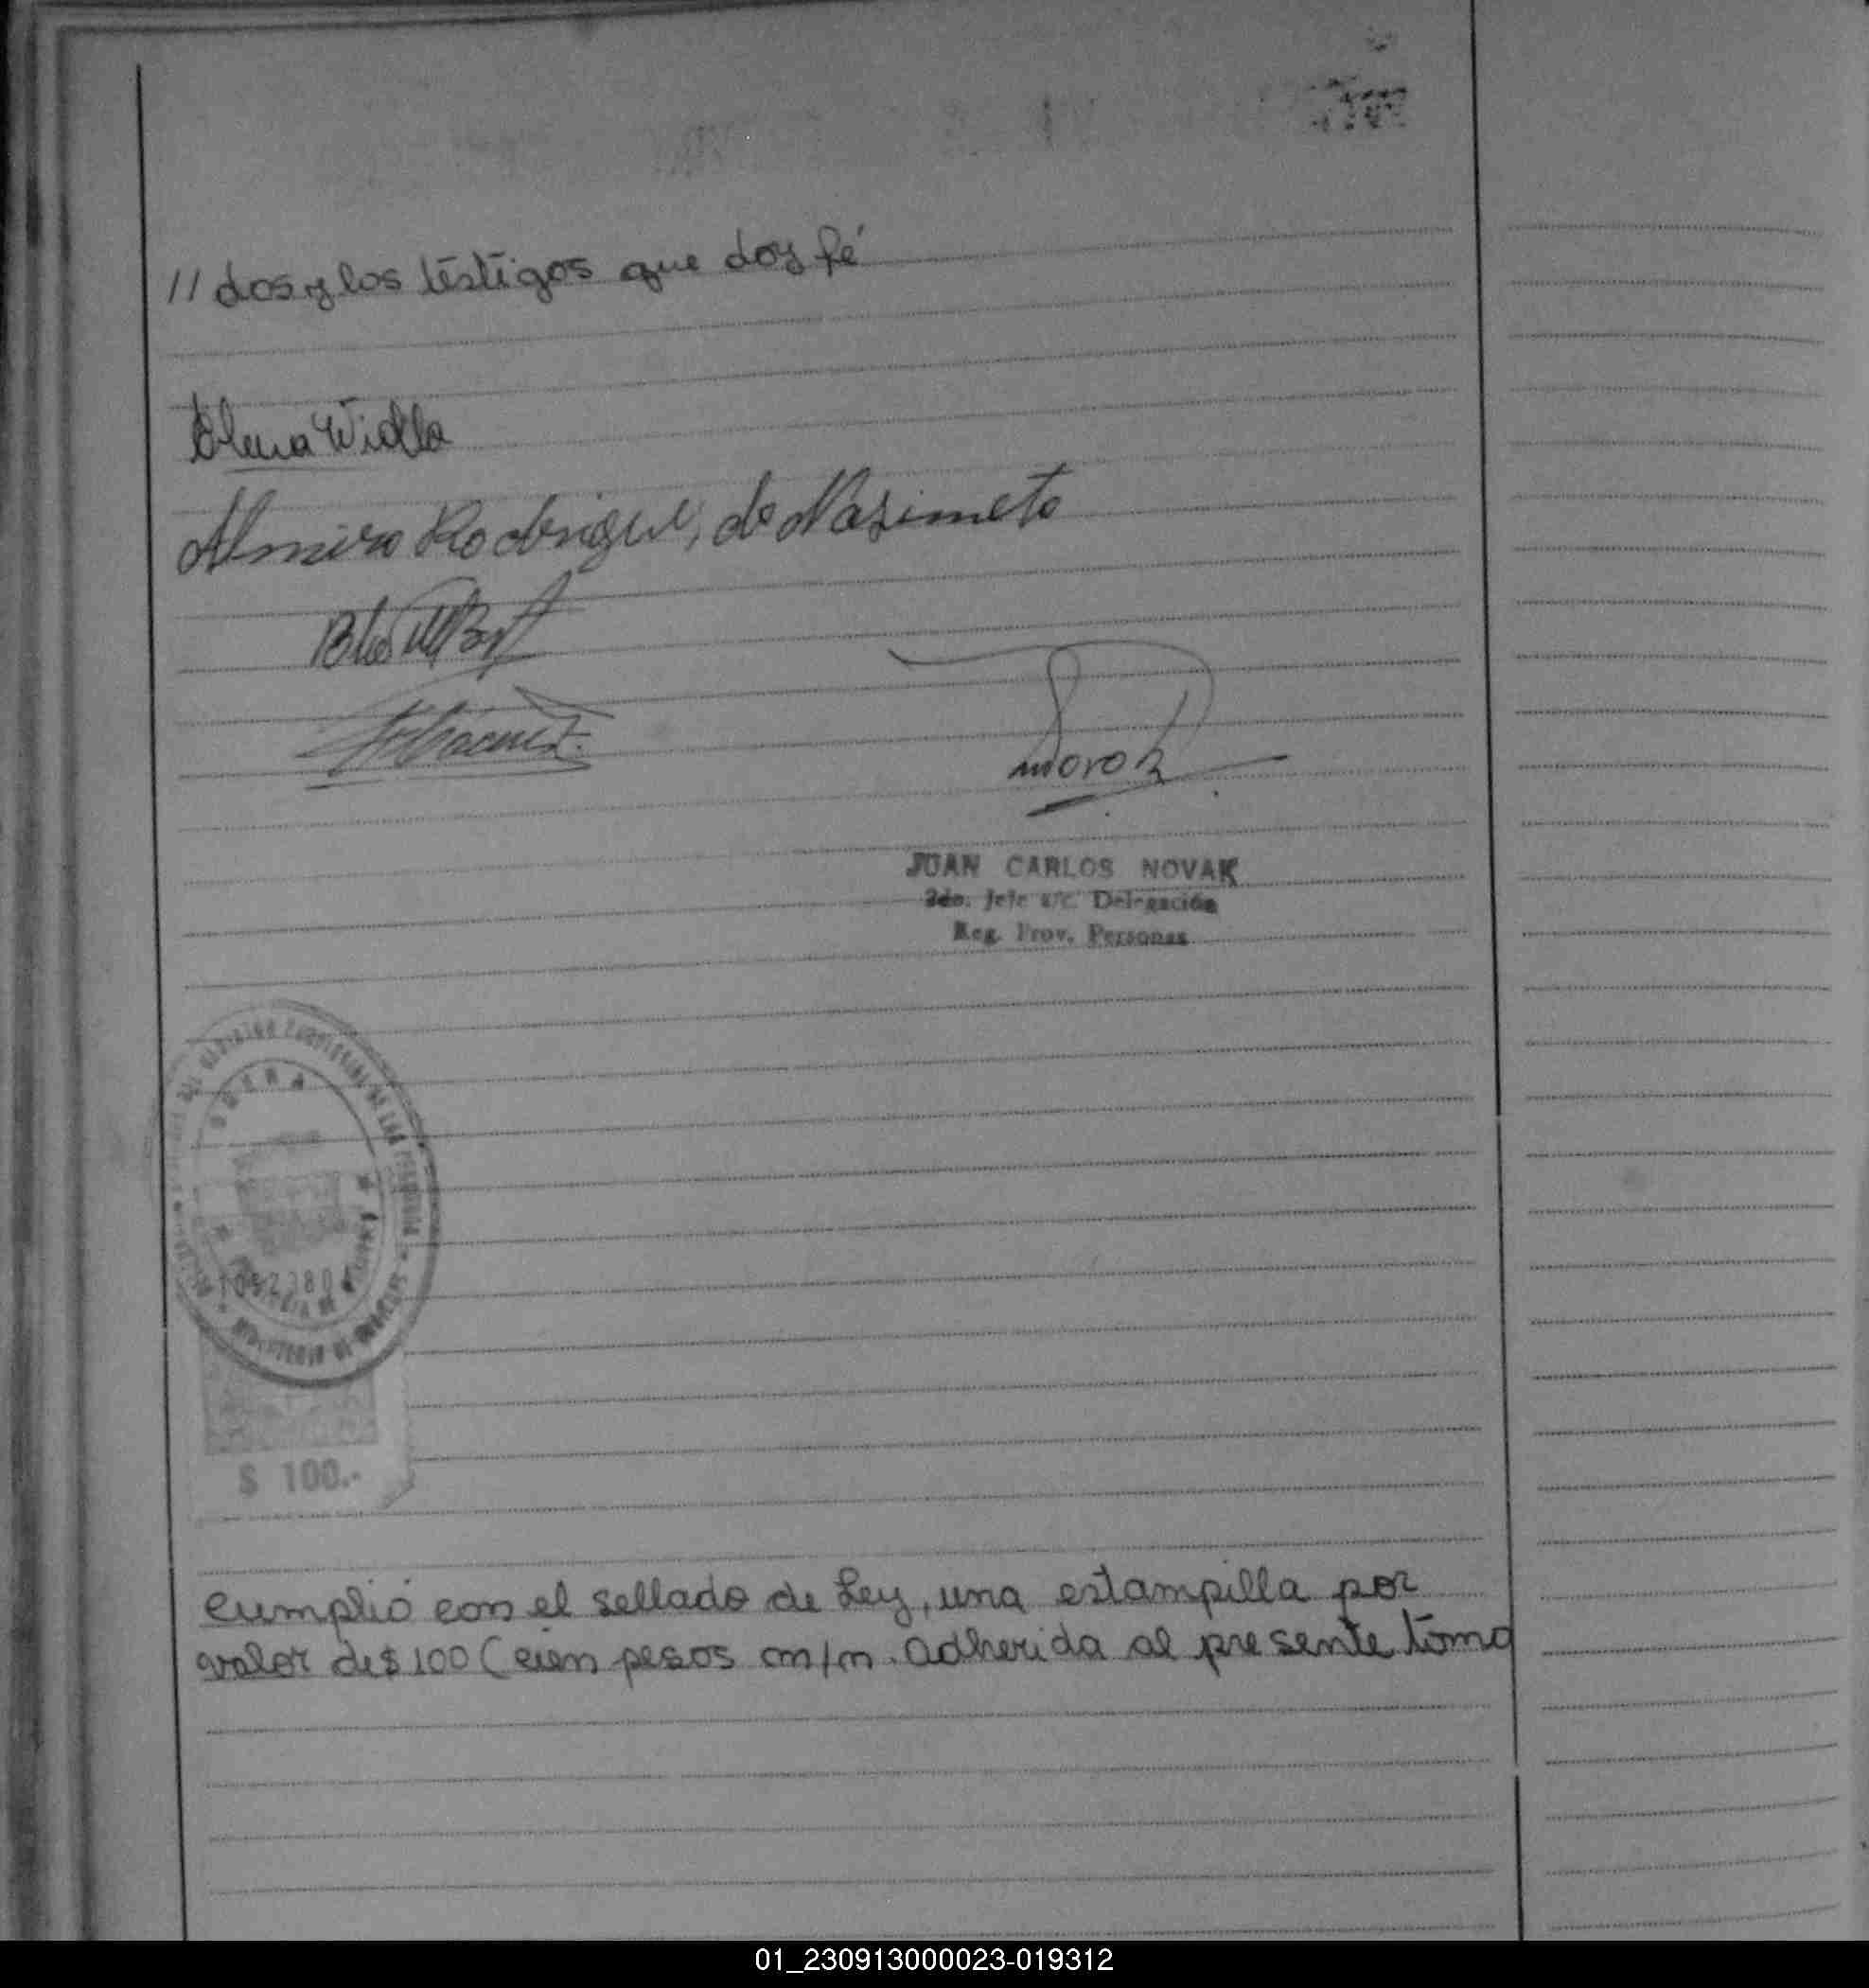 // dos y los testigos que doy fé
Elena Widla
Almiro Rodrigue, do Nasimeto
JUAN CARLOS NOVAK
2do. Jefe a/c. Delegación
Reg. Prov. Personas
OBERA
$ 100.-
Cumplió con el sellado de Ley, una estampilla por
valor de $ 100 (cien pesos m/n. adherida al presente tomo
01_230913000023-019312